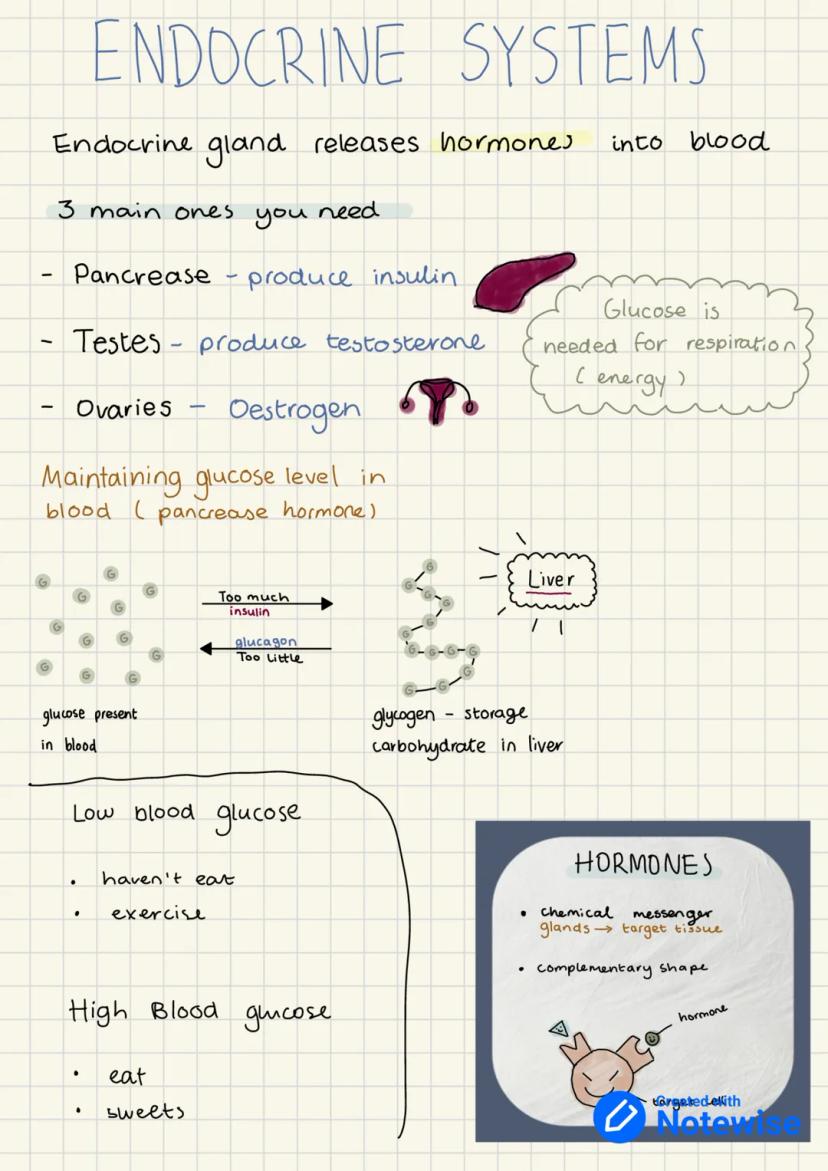 ENDOCRINE SYSTEMS
Endocrine gland releases hormones into blood
3 main ones you need
- Pancrease - produce insulin
- Testes - produce testosterone
- Ovaries - Oestrogen
Glucose is
needed for respiration
(energy)
Maintaining glucose level in
blood (pancrease hormone)
G
G
G
G
G
G
G
G
G
G
G
G
G
Too much
insulin
glucagon
Too little
G
G
G
G
G
G
G
G
G
G
G
G
G
Liver
glucose present
in blood
glycogen - storage
carbohydrate in liver
Low blood glucose
• haven't eat
• exercise
High Blood glucose
• eat
• sweets
HORMONES
• chemical messenger
glands → target tissue
• complementary shape
hormone
target cell
Created with
Notewise